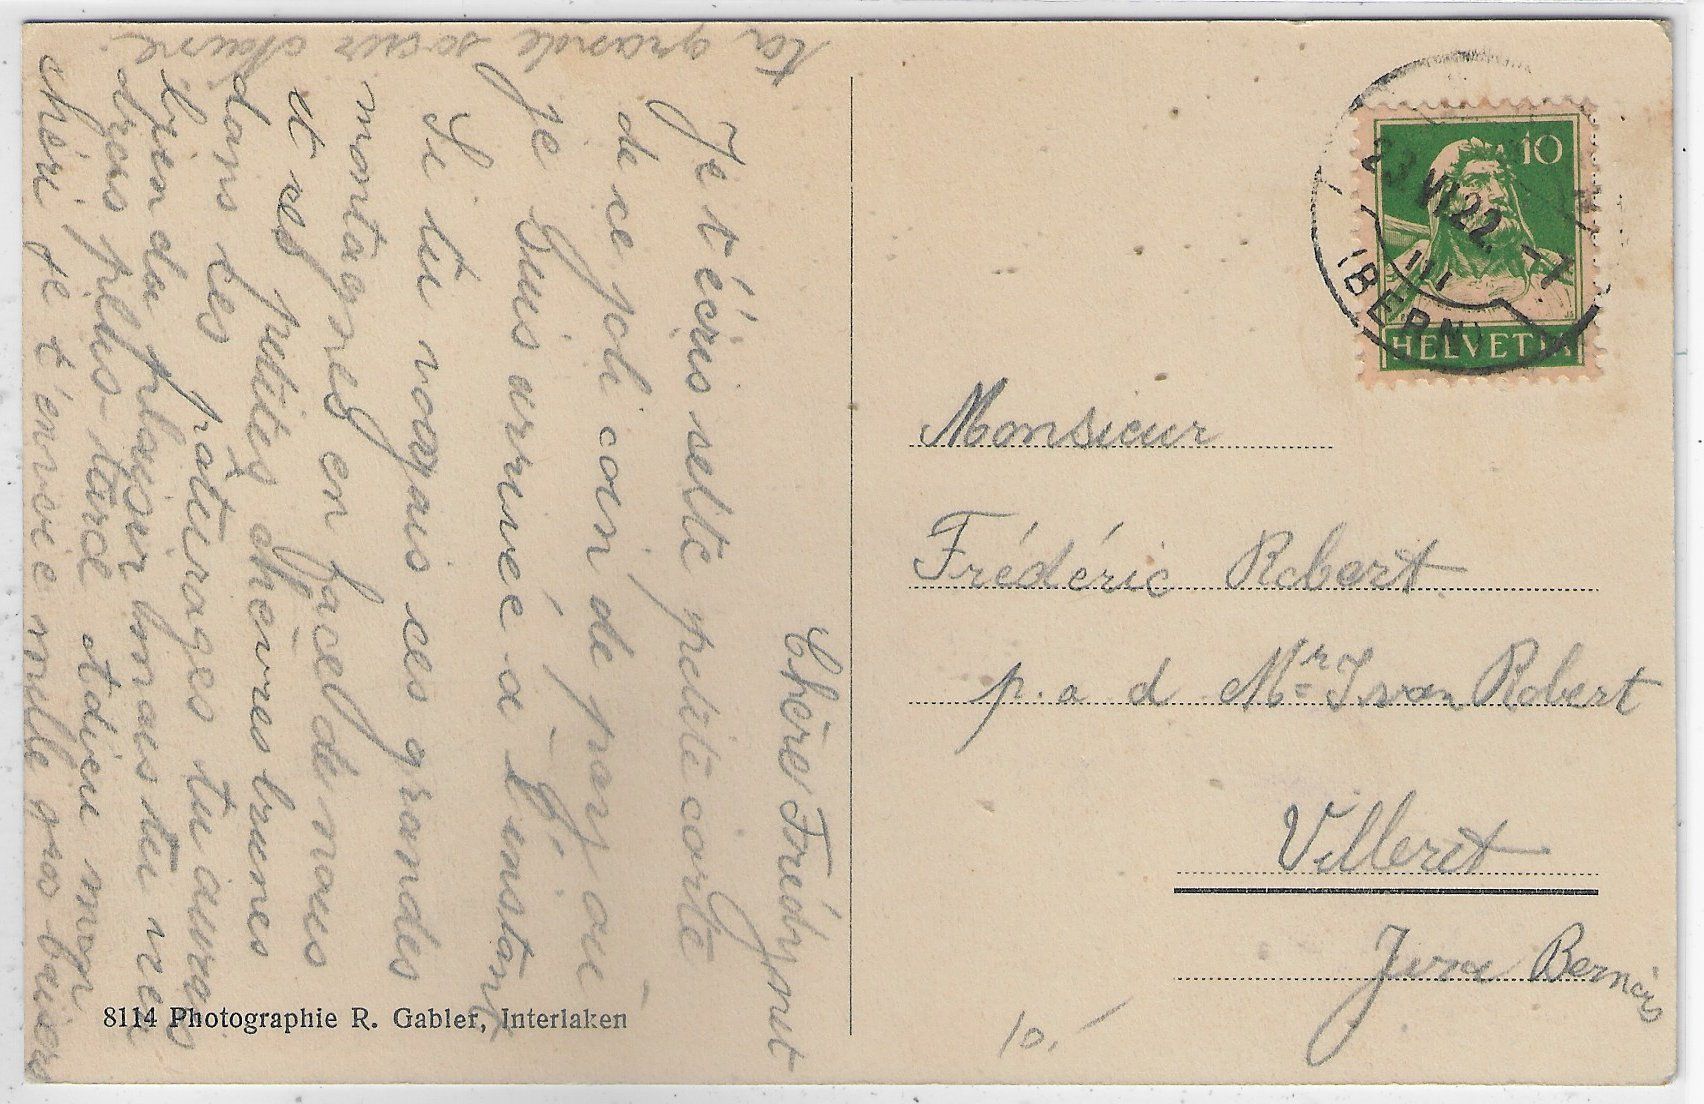 Chère Frédynet
Je t'écris sette petite corte
de ce joli coin de pays où
je suis arrivée à l'instant
Si tu voyais ces grandes
montagnes en face de nous
et ses petites chèvres brunes
dans ces pâturages tu aurais
bien du plaisir mais tu
dras plus-tard Adieu mon
chéri je t'envoie mille gros baisers
ta grande sœur
8114 Photographie R. Gabler, Interlaken
10
HELVETIA
23 VI 22. -7
III
(BERN)
Monsieur
Frédéric Robert
p. a d Mr Ivan Robert
Villeret
Jura Bernois
10.-